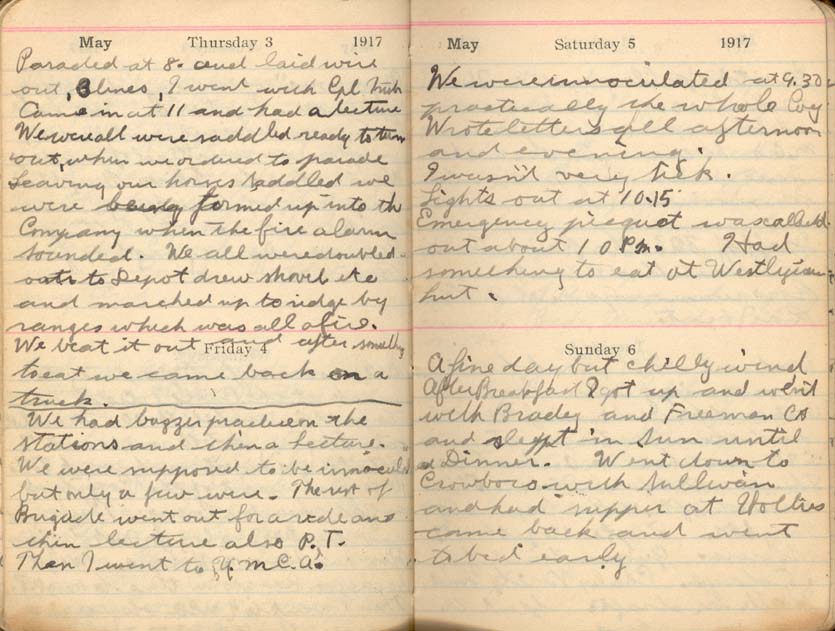 May Thursday 3 1917
Paraded at 8. and laid wire
out, 3 lines, I went with Cpl
Came in at 11 and had a lecture
We were all were saddled ready to turn
out, when we ordered to parade
Leaving our horses saddled we
were being formed up into the
Company when the fire alarm
sounded. We all were doubled
to Depot drew shovels etc
and marched up to ridge by
ranges which was all afire.
We beat it out and after something
Friday 4
to eat we came back on a
truck.
We had buzzer practice on the
stations and then a lecture.
We were supposed to be innocula
but only a few were. The rest of
Brigade went out for a ride and
then lecture also P.T.
Then I went to Y.M.C.A.
May Saturday 5 1917
We were innoculated at 9.30
practically the whole Coy
Wrote letters all afternoon
and evening.
I wasn't very sick.
Lights out at 10.15
Emergency picquet was called
out about 10 P.m. Had
something to eat at Westlyian
hut.
Sunday 6
A fine day but chilly wind
After Breakfast I got up and went
with Brady and Freeman
and slept in Sun until
Dinner. Went down to
Crowboro with Sullivan
and had supper at Hollies
came back and went
to bed early